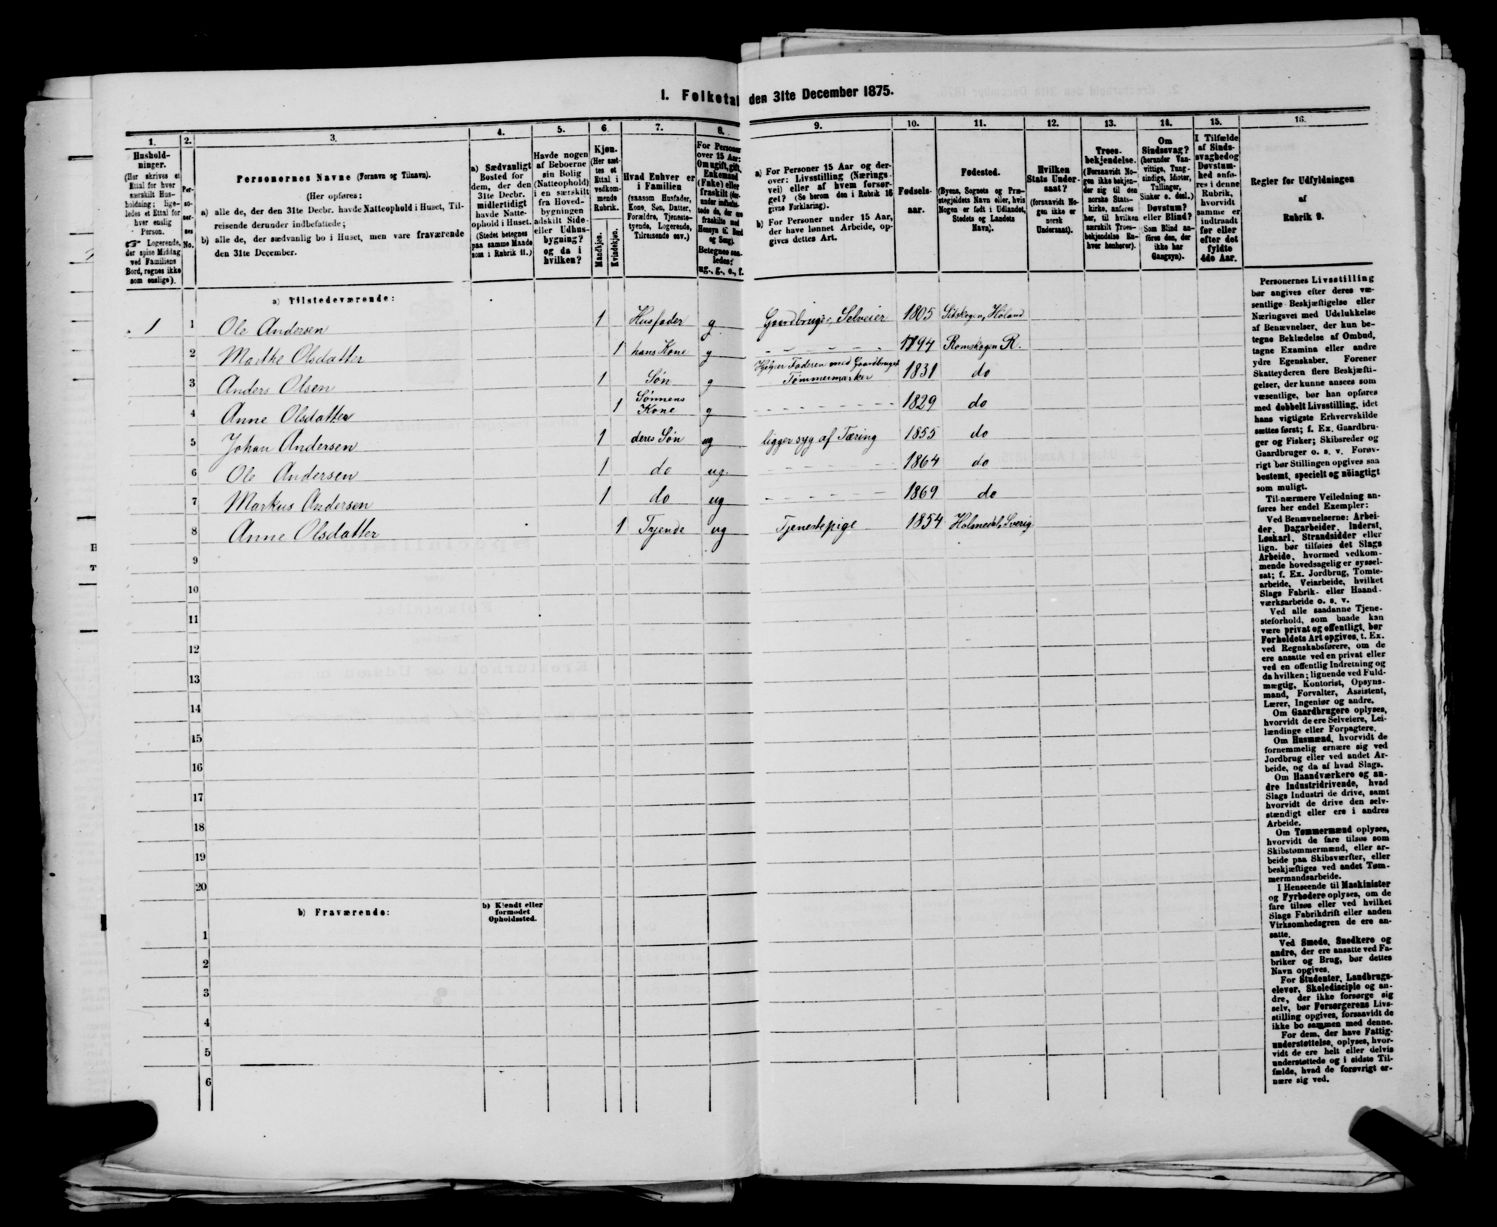 1. Folketal den 31te December 1875.
1. 2. 3. 4. 5. 6. 7. 8. 9. 10. 11. 12. 13. 14. 15. 16.
Hushold-
ninger.
(Her skrives et
Ettal for hver
særskilt Hus-
holdning; lige-
ledes et Ettal for
hver enslig
Person.
☛ Logerende,
der spise Middag
ved Familiens
Bord, regnes ikke
som enslige).
Per-
so-
ner-
nes
No.
Personernes Navne (Fornavn og Tilnavn).
(Her opføres:
a) alle de, der den 31te Decbr. havde Natteophold i Huset, Til-
reisende derunder indbefattede;
b) alle de, der sædvanlig bo i Huset, men vare fraværende
den 31te December.
a) Sædvanligt
Bosted for
dem, der den
31te Decbr.
midlertidigt
havde Natte-
ophold i Huset.
(Stedet betegnes
paa samme Maade
som i Rubrik 11.)
Havde nogen
af Beboerne
sin Bolig
(Natteophold)
i en særskilt
fra Hoved-
bygningen
adskilt Side-
eller Udhus-
bygning?
og da i
hvilken?
Kjøn.
(Her sæt-
tes et
Ettal i
vedkom-
mende
Rubrik.
Mandkjøn.
Kvindekjøn.
Hvad Enhver er
i Familien
(saasom Husfader,
Kone, Søn, Datter,
Forældre, Tjeneste-
tyende, Logerende,
Tilreisende osv.)
For Personer
over 15 Aar:
Om ugift, gift,
Enkemand
(Enke) eller
fraskilt
Betegnes saa-
ledes:
ug., g., e., f.
a) For Personer 15 Aar og der-
over: Livsstilling (Nærings-
vei) eller af hvem forsør-
get? (Se herom den i Rubrik 16
givne Forklaring).
b) For Personer under 15 Aar,
der have lønnet Arbeide, op-
gives dettes Art.
Fødsels-
aar.
Fødested.
(Byens, Sognets og Præ-
stegjeldets Navn eller, hvis
Nogen er født i Udlandet,
Stedets og Landets
Navn).
Hvilken
Stats Under-
saat?
(forsaavidt No-
gen ikke er
norsk
Undersaat).
Troes-
bekjendelse.
(Forsaavidt No-
gen ikke bekjen-
der sig til den
norske Stats-
kirke, anføres
her, til hvilken
særskilt Troes-
bekjendelse En-
hver henhører).
Om
Sindssvag?
(herunder Van-
vittige, Tung-
sindige, Idioter,
Tullinger,
Sinker o. desl.)
Døvstum?
eller Blind?
Som Blind an-
føres den, der
ikke har
Gangsyn).
I Tilfælde
af Sinds-
svaghed og
Døvstum-
hed anfø-
res i denne
Rubrik,
hvorvidt
samme er
indtraadt
før eller
efter det
fyldte
4de Aar.
Regler for Udfyldningen
af
Rubrik 9.
a) Tilstedeværende:
1 1 Ole Andersen 1 Husfader g Gaardbruger, Selveier 1805 Sidskogen, Høland
2 Marthe Olsdatter 1 hans Kone g - - - - - 1794 Romskogen R.
3 Anders Olsen 1 Søn g Hjelper Faderen med Gaardbruget
Tømmermærker 1831 do
4 Anne Olsdatter 1 Sønnens
Kone g - - - - - 1829 do
5 Johan Andersen 1 deres Søn ug ligger syg af Tæring 1855 do
6 Ole Andersen 1 do ug - - - - - 1864 do
7 Markus Andersen 1 do ug - - - - - 1869 do
8 Anne Olsdatter 1 Tyende ug Tjenestepige 1854 Holmedal, Sverig
9
10
11
12
13
14
15
16
17
18
19
20
b) Fraværende:
b) Kjendt eller
formodet
Opholdssted.
1
2
3
4
5
6
Personernes Livsstilling
bør angives efter deres væ-
sentlige Beskjæftigelse eller
Næringsvei med Udelukkelse
af Benævnelser, der kun be-
tegne Beklædelse af Ombud,
tagne Examina eller andre
ydre Egenskaber. Forener
Skatteyderen flere Beskjæfti-
gelser, der kunne ansees som
væsentlige, bør han opføres
med dobbelt Livsstilling, idet
hans vigtigste Erhvervskilde
sættes først; f. Ex. Gaardbru-
ger og Fisker; Skibsreder og
Gaardbruger o. s. v. Forøv-
rigt bør Stillingen opgives saa
bestemt, specielt og nøiagtigt
som muligt.
Til nærmere Veiledning an-
føres her endel Exempler:
Ved Benævnelserne: Arbei-
der, Dagarbeider, Inderst,
Løskarl, Strandsidder eller
lign. bør tilføies det Slags
Arbeide, hvormed vedkom-
mende hovedsagelig er syssel-
sat; f. Ex. Jordbrug, Tomte-
arbeide, Veiarbeide, hvilket
Slags Fabrik- eller Haand-
værksarbeide o. s. v.
Ved alle saadanne Tjene-
steforhold, som baade kan
være privat og offentligt, bør
Forholdets Art opgives, t. Ex.
ved Regnskabsførere, om de
ere ansatte ved en privat eller
ved en offentlig Indretning og
da hvilken; lignende ved Fuld-
mægtig, Kontorist, Opsyns-
mand, Forvalter, Assistent,
Lærer, Ingeniør og andre.
Om Gaardbrugere oplyses,
hvorvidt de ere Selveiere, Lei-
lændinge eller Forpagtere.
Om Husmænd, hvorvidt de
fornemmelig ernære sig ved
Jordbrug eller ved andet Ar-
beide, og da af hvad Slags.
Om Haandværkere og an-
dre Industridrivende, hvad
Slags Industri de drive, samt
hvorvidt de drive den selv-
stændigt eller ere i andres
Arbeide.
Om Tømmermænd oplyses,
hvorvidt de fare tilsøs som
Skibstømmermænd, eller ar-
beide paa Skibsværfter, eller
beskjæftiges ved andet Tøm-
mermandsarbeide.
I Henseende til Maskinister
og Fyrbødere oplyses, om de
fare tilsøs eller ved hvilket
Slags Fabrikdrift eller anden
Virksomhedsgren de ere an-
satte.
Ved Smede, Snedkere og
andre, der ere ansatte ved Fa-
briker og Brug, bør dettes
Navn opgives.
For Studenter, Landbrugs-
elever, Skoledisciple og an-
dre, der ikke forsørge sig
selv, bør Forsørgerens Livs-
stilling opgives, forsaavidt de
ikke bo sammen med denne.
For dem, der have Fattig-
understøttelse, oplyses, hvor-
vidt de ere helt eller delvis
understøttede og i sidste Til-
fælde, hvad de forøvrigt er-
nære sig ved.